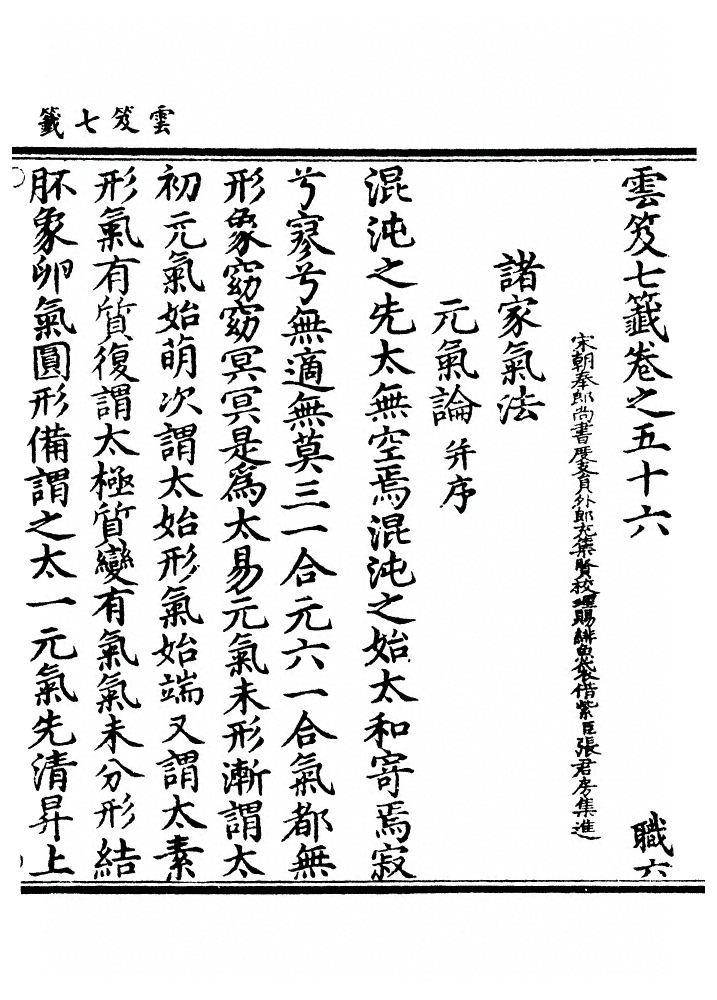 雲笈七籤
雲笈七籤卷之五十六
職六
宋朝奉郎尚書度支員外郎充集賢校理賜緋魚袋借紫臣張君房集進
諸家氣法
元氣論 并序
混沌之先太無空焉混沌之始太和寄焉寂
兮寥兮無適無莫三一合元六一合氣都無
形象窈窈冥冥是爲太易元氣未形漸謂太
初元氣始萌次謂太始形氣始端又謂太素
形氣有質復謂太極質變有氣氣未分形結
胚象卵氣圓形備謂之太一元氣先清昇上